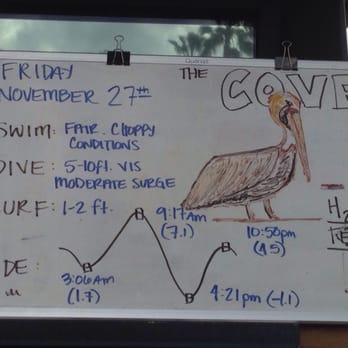 Quartet
FRIDAY
NOVEMBER 27th
THE
COVE
SWIM: FAIR. CHOPPY
CONDITIONS
DIVE: 5-10ft. VIS
MODERATE SURGE
URF: 1-2 ft.
9:17am
(7.1)
10:50pm
(4.5)
H2
DE:
3:06AM
(1.7)
4:21pm (-1.1)